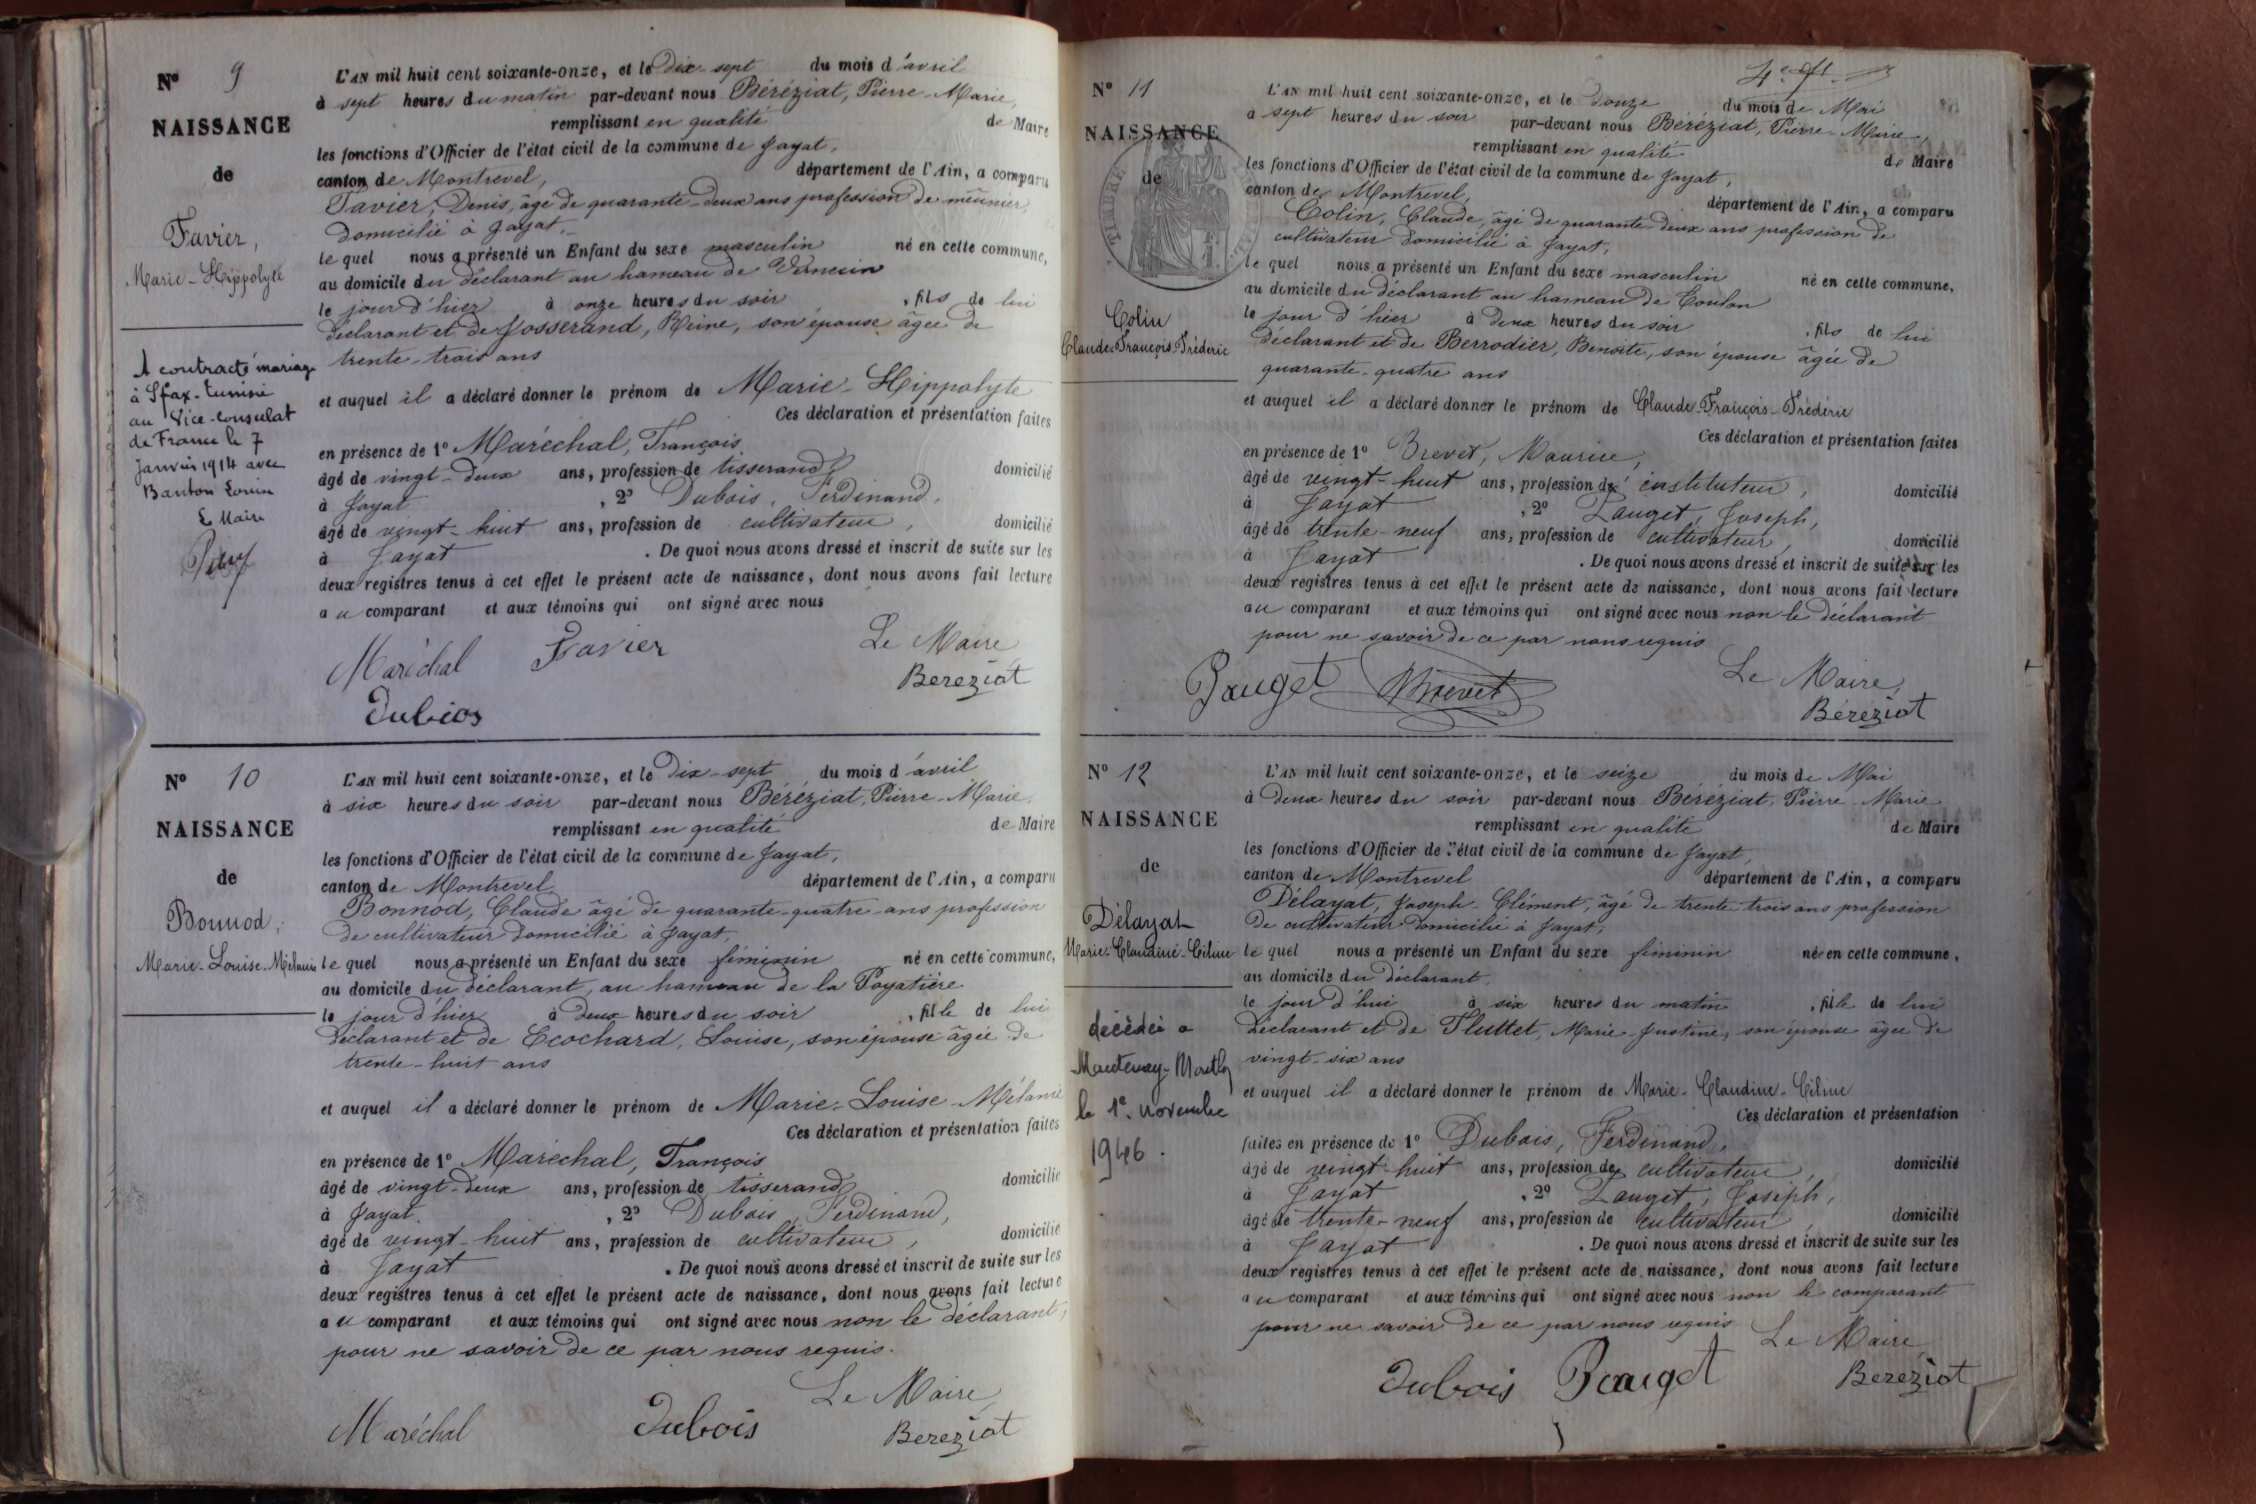 N° 9
NAISSANCE
de
Favier,
Marie-Hippolyte
A contracté mariage
à Sfax-Tunisie
au Vice-Consulat
de France le 7
janvier 1914 avec
L Maire
L'AN mil huit cent soixante-onze, et le dix-sept du mois d'avril
à sept heures du matin par-devant nous Béréziat, Pierre-Marie,
remplissant en qualité de Maire
les fonctions d'Officier de l'état civil de la commune de Jayat,
canton de Montrevel, département de l'Ain, a comparu
Favier, Denis, âgé de quarante-deux ans profession de meûnier,
domicilié à Jayat.
le quel nous a présenté un Enfant du sexe masculin né en cette commune,
au domicile du déclarant au hameau de
le jour d'hier à onze heures du soir, fils de lui
déclarant et de Josserand, Reine, son épouse âgée de
trente-trois ans
et auquel il a déclaré donner le prénom de Marie-Hippolyte
Ces déclaration et présentation faites
en présence de 1° Maréchal, François
âgé de vingt-deux ans, profession de tisserand, domicilié
à Jayat, 2° Dubois, Ferdinand,
âgé de vingt-huit ans, profession de cultivateur, domicilié
à Jayat. De quoi nous avons dressé et inscrit de suite sur les
deux registres tenus à cet effet le présent acte de naissance, dont nous avons fait lecture
au comparant et aux témoins qui ont signé avec nous
Maréchal Favier Le Maire
Béréziat
Dubios
N° 10
NAISSANCE
de
Bonnod,
Marie-Louise-Mélanie
L'AN mil huit cent soixante-onze, et le dix-sept du mois d'avril
à six heures du soir par-devant nous Béréziat, Pierre-Marie,
remplissant en qualité de Maire
les fonctions d'Officier de l'état civil de la commune de Jayat,
canton de Montrevel département de l'Ain, a comparu
Bonnod, Claude âgé de quarante-quatre ans profession
de cultivateur domicilié à Jayat,
le quel nous a présenté un Enfant du sexe féminin né en cette commune,
au domicile du déclarant, au hameau de la Poyatière
le jour d'hier à deux heures du soir, fille de lui
déclarant et de Ecochard, Louise, son épouse âgée de
trente-huit ans
et auquel il a déclaré donner le prénom de Marie-Louise-Mélanie
Ces déclaration et présentation faites
en présence de 1° Maréchal, François
âgé de vingt-deux ans, profession de tisserand domicilié
à Jayat, 2° Dubois, Ferdinand,
âgé de vingt-huit ans, profession de cultivateur, domicilié
à Jayat. De quoi nous avons dressé et inscrit de suite sur les
deux registres tenus à cet effet le présent acte de naissance, dont nous avons fait lecture
au comparant et aux témoins qui ont signé avec nous non le déclarant,
pour ne savoir de ce par nous requis.
Le Maire,
Maréchal Dubois Béréziat
N° 11
NAISSANCE
de
TIMBRE
Colin
Claude-François-Fréderic
L'AN mil huit cent soixante-onze, et le douze du mois de Mai
à sept heures du soir par-devant nous Béréziat, Pierre-Marie,
remplissant en qualité de Maire
les fonctions d'Officier de l'état civil de la commune de Jayat,
canton de Montrevel, département de l'Ain, a comparu
Colin, Claude, âgé de quarante-deux ans profession de
cultivateur domicilié à Jayat,
le quel nous a présenté un Enfant du sexe masculin né en cette commune,
au domicile du déclarant au hameau de Toulon
le jour d'hier à deux heures du soir, fils de lui
déclarant et de Berrodier, Benoîte, son épouse âgée de
quarante-quatre ans
et auquel il a déclaré donner le prénom de Claude-François-Fréderic
Ces déclaration et présentation faites
en présence de 1° Brevet, Maurice,
âgé de vingt-huit ans, profession d'instituteur, domicilié
à Jayat, 2° Pauget, Joseph,
âgé de trente-neuf ans, profession de cultivateur, domicilié
à Jayat. De quoi nous avons dressé et inscrit de suite sur les
deux registres tenus à cet effet le présent acte de naissance, dont nous avons fait lecture
au comparant et aux témoins qui ont signé avec nous non le déclarant
pour ne savoir de ce par nous requis
Pauget Brevet Le Maire,
Béréziat
N° 12
NAISSANCE
de
Délayat
Marie-Claudine-Céline
décédée à
Mantenay-Montlin
le 1e. novembre
1946.
L'AN mil huit cent soixante-onze, et le seize du mois de Mai
à deux heures du soir par-devant nous Béréziat, Pierre-Marie
remplissant en qualité de Maire
les fonctions d'Officier de l'état civil de la commune de Jayat,
canton de Montrevel département de l'Ain, a comparu
Délayat, Joseph-Clément, âgé de trente-trois ans profession
de cultivateur domicilié à Jayat,
le quel nous a présenté un Enfant du sexe féminin né en cette commune,
au domicile du déclarant,
le jour d'hui à six heures du matin, fille de lui
déclarant et de Fluttet, Marie-Justine, son épouse âgée de
vingt-six ans
et auquel il a déclaré donner le prénom de Marie-Claudine-Céline
Ces déclaration et présentation
faites en présence de 1° Dubois, Ferdinand,
âgé de vingt-huit ans, profession de cultivateur, domicilié
à Jayat, 2° Pauget, Joseph,
âgé de trente-neuf ans, profession de cultivateur, domicilié
à Jayat. De quoi nous avons dressé et inscrit de suite sur les
deux registres tenus à cet effet le présent acte de naissance, dont nous avons fait lecture
au comparant et aux témoins qui ont signé avec nous non le comparant
pour ne savoir de ce par nous requis Le Maire
Dubois Pauget Béréziat